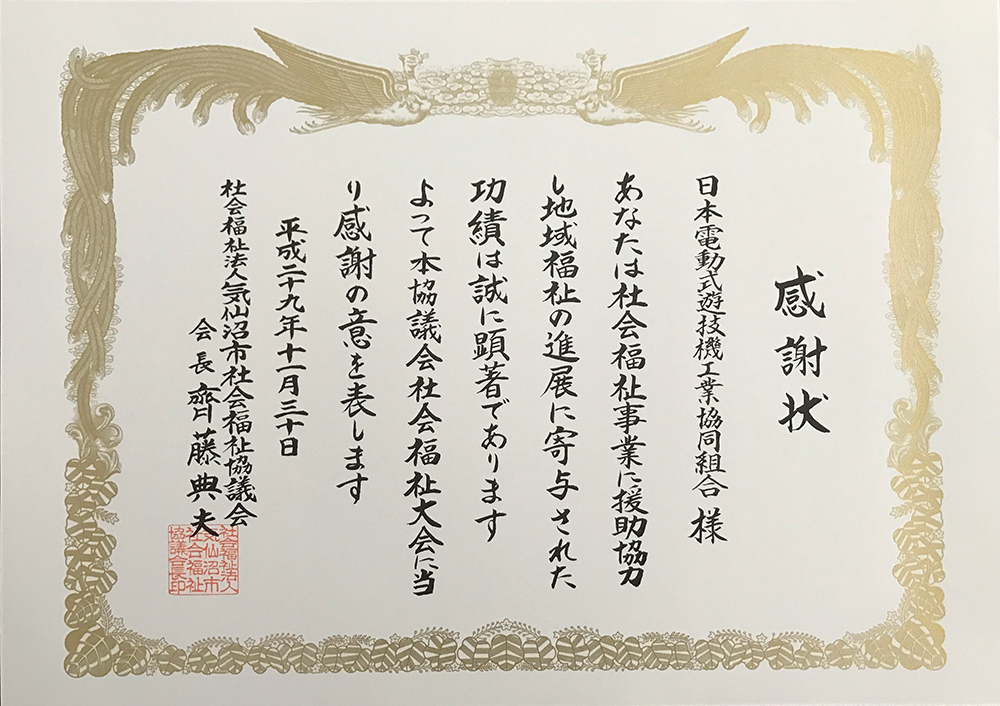 感謝状
日本電動式遊技機工業協同組合 様
あなたは社会福祉事業に援助協力
し地域福祉の進展に寄与された
功績は誠に顕著であります
よって本協議会社会福祉大会に当
り感謝の意を表します
平成二十九年十一月三十日
社会福祉法人気仙沼市社会福祉協議会
会長 齊藤典夫
社会福祉法人
気仙沼市
社会福祉
協議会長印